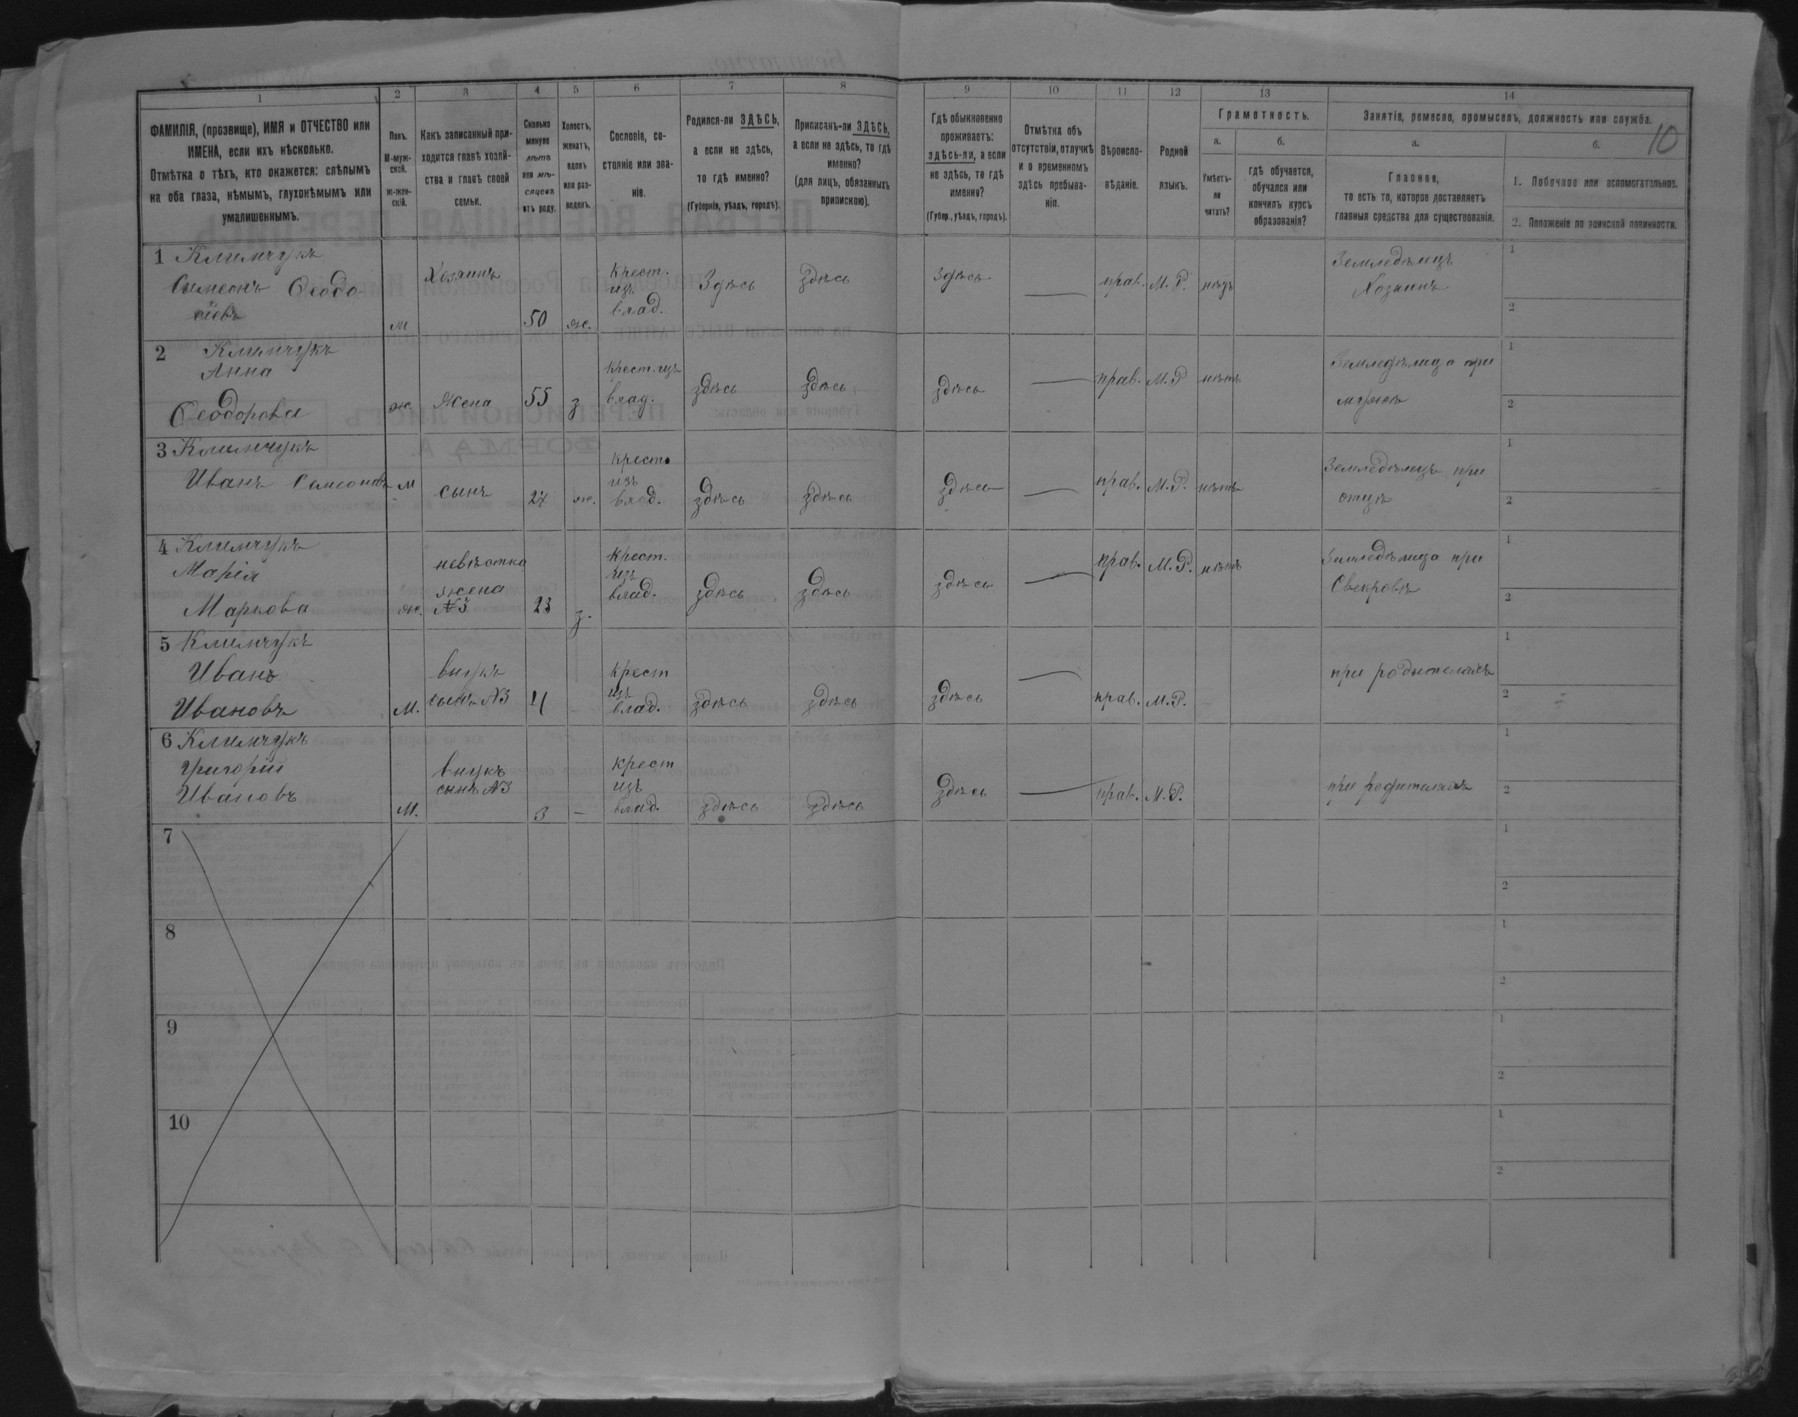 10
1 2 3 4 5 6 7 8 9 10 11 12 13 14
ФАМИЛІЯ, (прозвище), ИМЯ и ОТЧЕСТВО или
ИМЕНА, если ихъ нѣсколько.
Отмѣтка о тѣхъ, кто окажется: слѣпымъ
на оба глаза, нѣмымъ, глухонѣмымъ или
умалишеннымъ.
Полъ.
М-муж-
ской.
Ж-жен-
скій.
Какъ записанный при-
ходится главѣ хозяй-
ства и главѣ своей
семьи.
Сколько
минуло
лѣтъ
или мѣ-
сяцевъ
отъ роду.
Холостъ,
женатъ,
вдовъ
или раз-
веденъ.
Сословіе, со-
стояніе или зва-
ніе.
Родился-ли ЗДѢСЬ,
а если не здѣсь,
то гдѣ именно?
(Губернія, уѣздъ, городъ).
Приписанъ-ли ЗДѢСЬ,
а если не здѣсь, то гдѣ
именно?
(для лицъ, обязанныхъ
припискою).
Гдѣ обыкновенно
проживаетъ:
здѣсь-ли, а если
не здѣсь, то гдѣ
именно?
(Губер., уѣздъ, городъ).
Отмѣтка объ
отсутствіи, отлучкѣ
и о временномъ
здѣсь пребыва-
ніи.
Вѣроиспо-
вѣданіе.
Родной
языкъ.
Грамотность.
а.
Умѣетъ-
ли
читать?
б.
гдѣ обучается,
обучался или
кончилъ курсъ
образованія?
Занятіе, ремесло, промыселъ, должность или служба.
а.
Главное,
то есть то, которое доставляетъ
главныя средства для существованія.
б.
1. Побочное или вспомогательное.
2. Положеніе по воинской повинности.
1 Климчукъ
Симеонъ Феодо
м Хозяинъ 50 ж. крест. изъ влад. Здѣсь здѣсь здѣсь — прав. М. Р. нѣтъ Земледѣлецъ
Хозяинъ
1
2
2 Климчукъ
Анна
Феодорова ж. жена 55 з крест. изъ влад. здѣсь здѣсь здѣсь — прав. М. Р нѣтъ Земледѣлица при
мужѣ
1
2
3 Климчукъ
Иванъ Симеоновъ м сынъ 27 ж. крест. изъ влад. здѣсь здѣсь здѣсь — прав. М. Р. нѣтъ Земледѣлецъ при
отцѣ
1
2
4 Климчукъ
Марія
Маркова ж. невѣстка
жена
№3 23 з. крест. изъ влад. здѣсь здѣсь здѣсь — прав. М. Р. нѣтъ Земледѣлица при
Свекровѣ
1
2
5 Климчукъ
Иванъ
Ивановъ М. внукъ
сынъ №3 4 - крест изъ влад. здѣсь здѣсь здѣсь — прав. М. Р. при родителяхъ
1
2
6 Климчукъ
Григорій
Ивановъ М. внукъ
сынъ №3 3 – крест изъ влад. здѣсь здѣсь здѣсь — прав. М. Р. при родителяхъ
1
2
7
1
2
8
1
2
9
1
2
10
1
2